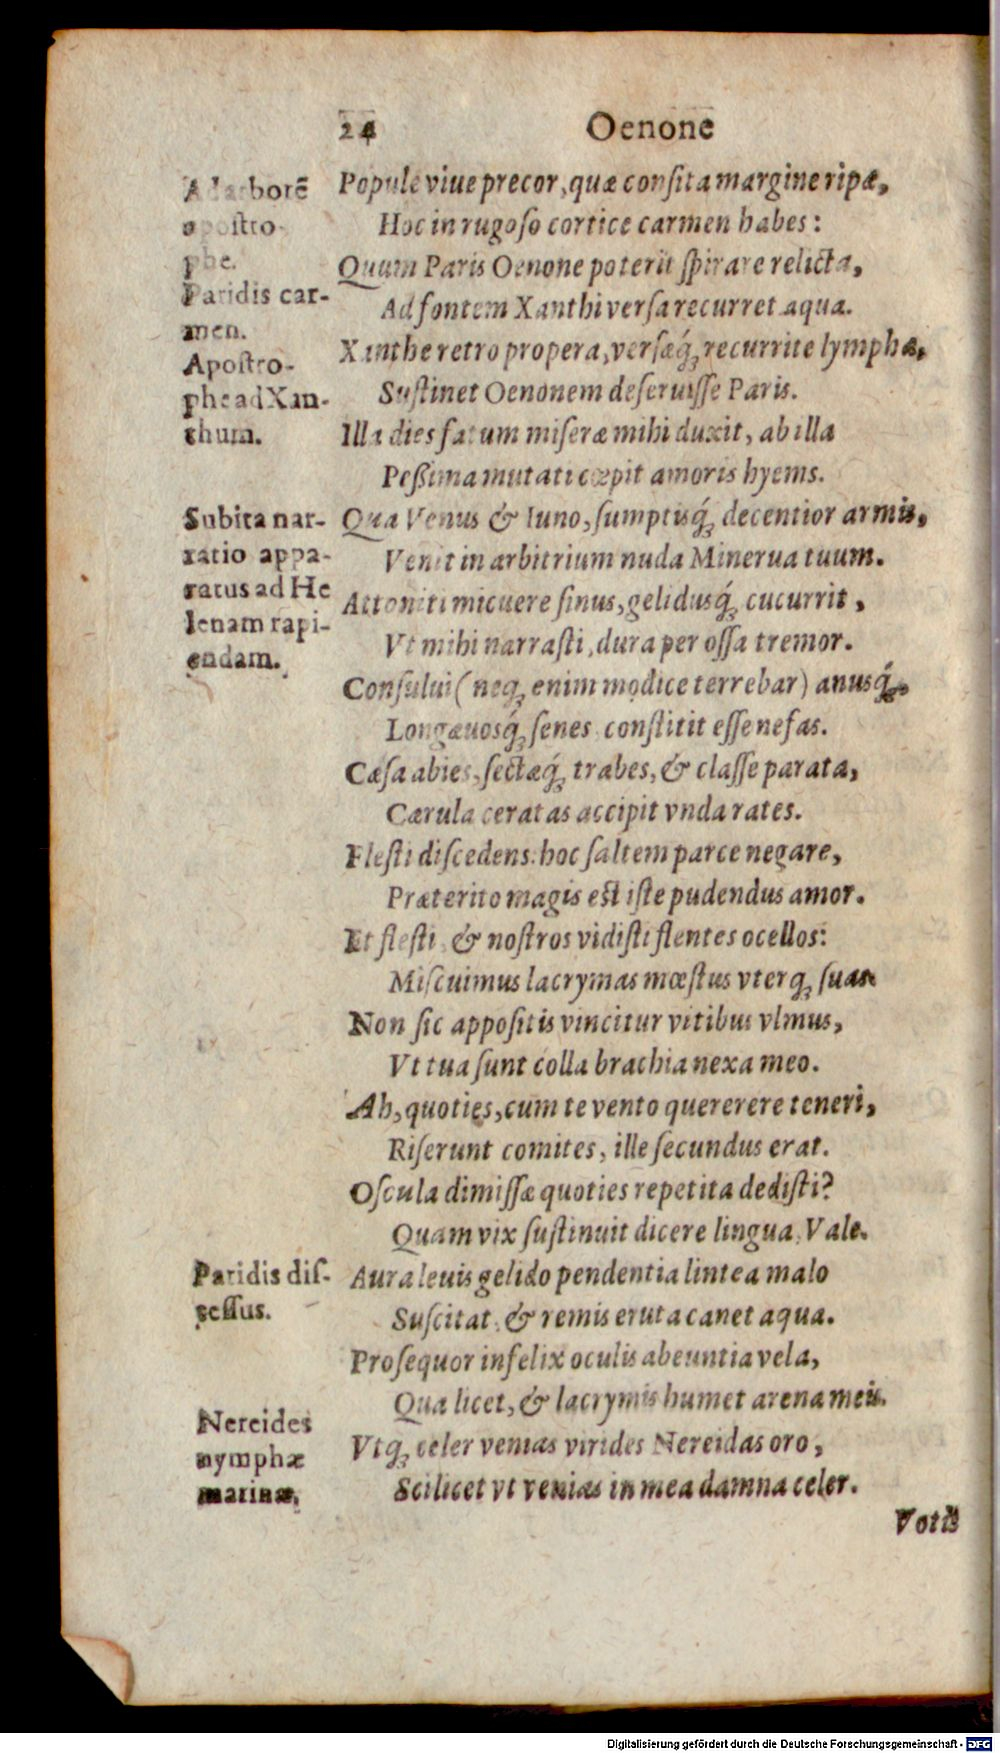 24 Oenone
Ad arborē
apostro-
phe.
Paridis car-
men.
Apostro-
phe ad Xan-
thum.
Popule viue precor, quæ consita margine ripæ,
Hoc in rugoso cortice carmen habes:
Quum Paris Oenone poterit spirare relicta,
Ad fontem Xanthi versa recurret aqua.
Xanthe retro propera, versæq́; recurrite lymphæ,
Sustinet Oenonem deseruisse Paris.
Illa dies fatum miseræ mihi duxit, ab illa
Peßima mutati cœpit amoris hyems.
Subita nar-
ratio appa-
ratus ad He
lenam rapi-
endam.
Qua Venus & Iuno, sumptisq́; decentior armis,
Venit in arbitrium nuda Minerua tuum.
Attoniti micuere sinus, gelidusq́; cucurrit,
Vt mihi narrasti, dura per ossa tremor.
Consului (neq; enim modice terrebar) anusq́;,
Longæuosq́; senes constitit esse nefas.
Cæsa abies, sectæq́; trabes, & classe parata,
Cærula ceratas accipit vnda rates.
Flesti discedens: hoc saltem parce negare,
Præterito magis est iste pudendus amor.
Et flesti, & nostros vidisti flentes ocellos:
Miscuimus lacrymas mœstus vterq; suas.
Non sic appositis vincitur vitibus vlmus,
Vt tua sunt colla brachia nexa meo.
Ah, quoties, cum te vento quererere teneri,
Riserunt comites, ille secundus erat.
Oscula dimissæ quoties repetita dedisti?
Quam vix sustinuit dicere lingua, Vale.
Paridis dis-
cessus.
Aura leuis gelido pendentia lintea malo
Suscitat, & remis eruta canet aqua.
Prosequor infelix oculis abeuntia vela,
Qua licet, & lacrymis humet arena meis.
Nereides
nymphæ
marinæ.
Vtq; celer venias virides Nereidas oro,
Scilicet vt venias in mea damna celer.
Votis
Digitalisierung gefördert durch die Deutsche Forschungsgemeinschaft - DFG